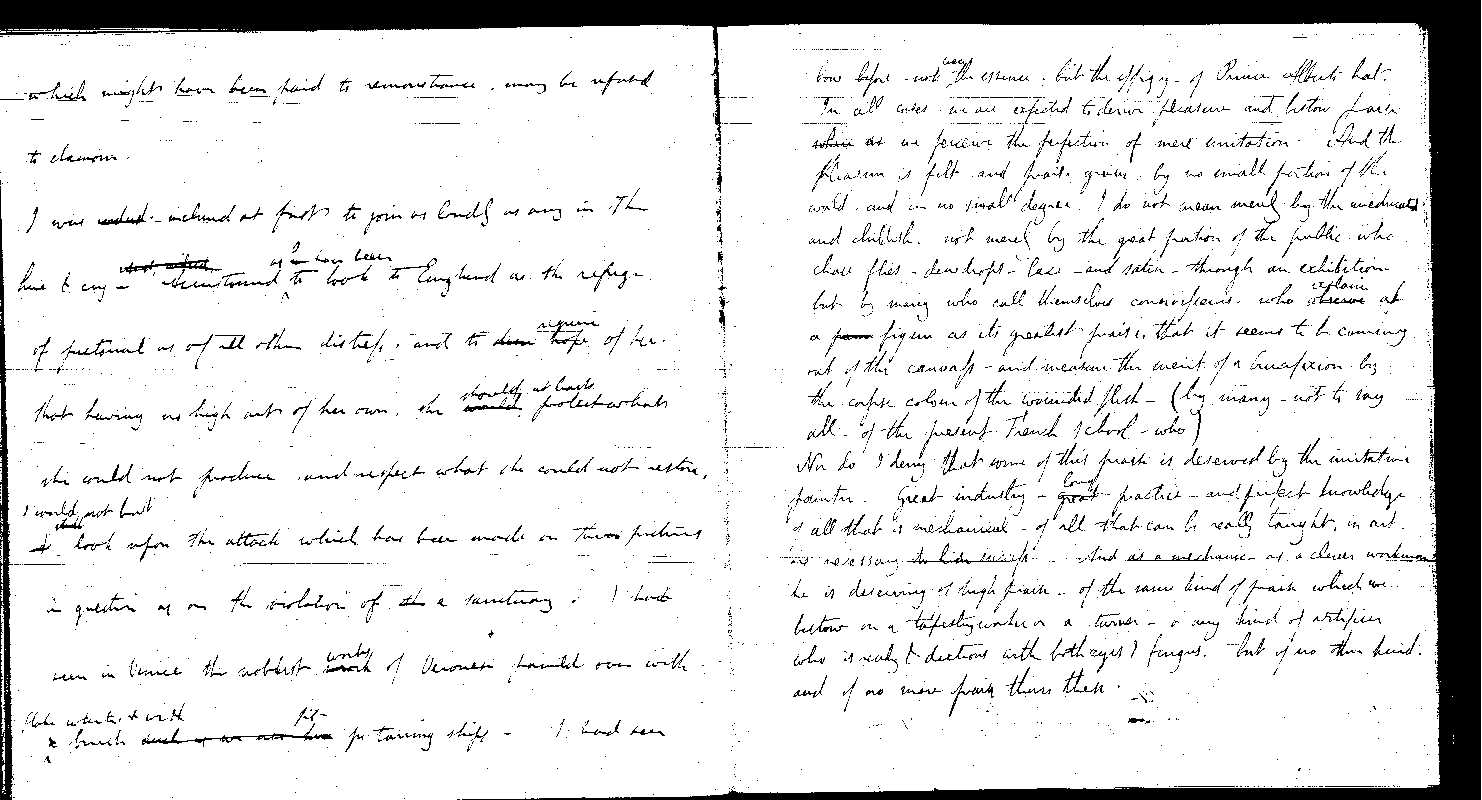 which might have been paid to remonstrance, may be refused
to clamour.
I was inclined at first to join as loudly as any in the
hue & cry - as I have been
Accustomed to look to England as the refuge
require
of pictorial as of all other distress, and to hope of her.
should at least
that having no high art of her own, she would protect what
she could not produce and respect what she could not restore,
I would not but
look upon the attack which has been made on the pictures
in question as on the violation of a sanctuary. I had
works
seen in Venice the noblest of Veronese painted over with
flake white with
a brush fit for tarring ships - I had seen
bow before - not the essence, but the effigy - of Prince Albert's hat.
In all cases we are expected to derive pleasure and bestow praise
as we perceive the perfection of mere imitation. And the
pleasure is felt and praise given, by no small portion of the
world, and in no small degree. I do not mean merely by the uneducated
and childish, not merely by the great portion of the public who
chase flies - dewdrops - lace - and satin - through an exhibition
exclaim
but by many who call themselves connoisseurs, who observe of
a figure as its greatest praise, that it seems to be coming
out of the canvass - and measure the merit of a Crucifixion by
the corpse colour of the wounded flesh - (by many - not to say
all - of the present French school - who)
Nor do I deny that some of this praise is deserved by the imitative
long
painter. Great industry - great practice - and perfect knowledge
of all that is mechanical - of all that can be really taught, in art.
is necessary to his success. And as a mechanic - as a clever workman
he is deserving of high praise - of the same kind of praise which we
bestow on a tapestry worker or a turner - or any kind of artificer
who is ready with both eyes & fingers. but of no other kind.
and of no more praise than these.